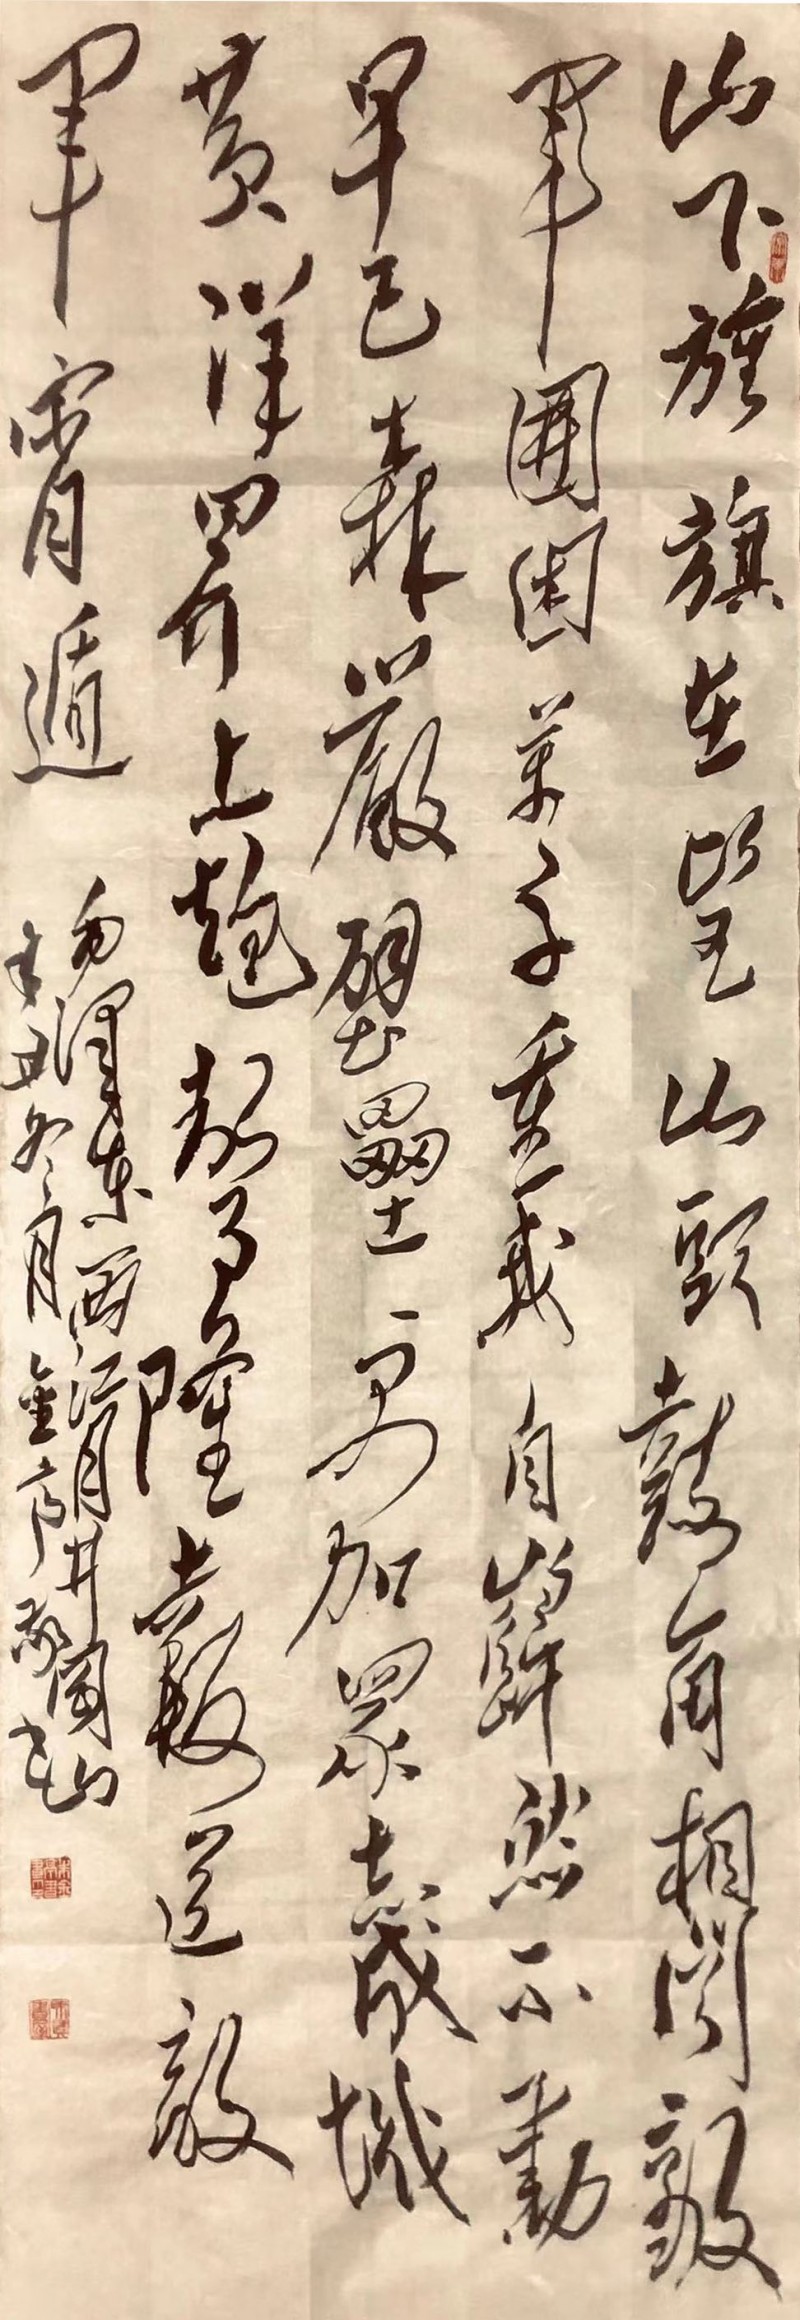 山下旌旗在望山頭鼓角相聞敵
軍圍困萬千重我自巋然不動
早已森嚴壁壘更加眾志成城
黃洋界上炮聲隆報道敵
軍宵遁
毛澤東西江月井岡山
辛丑冬月金廬書